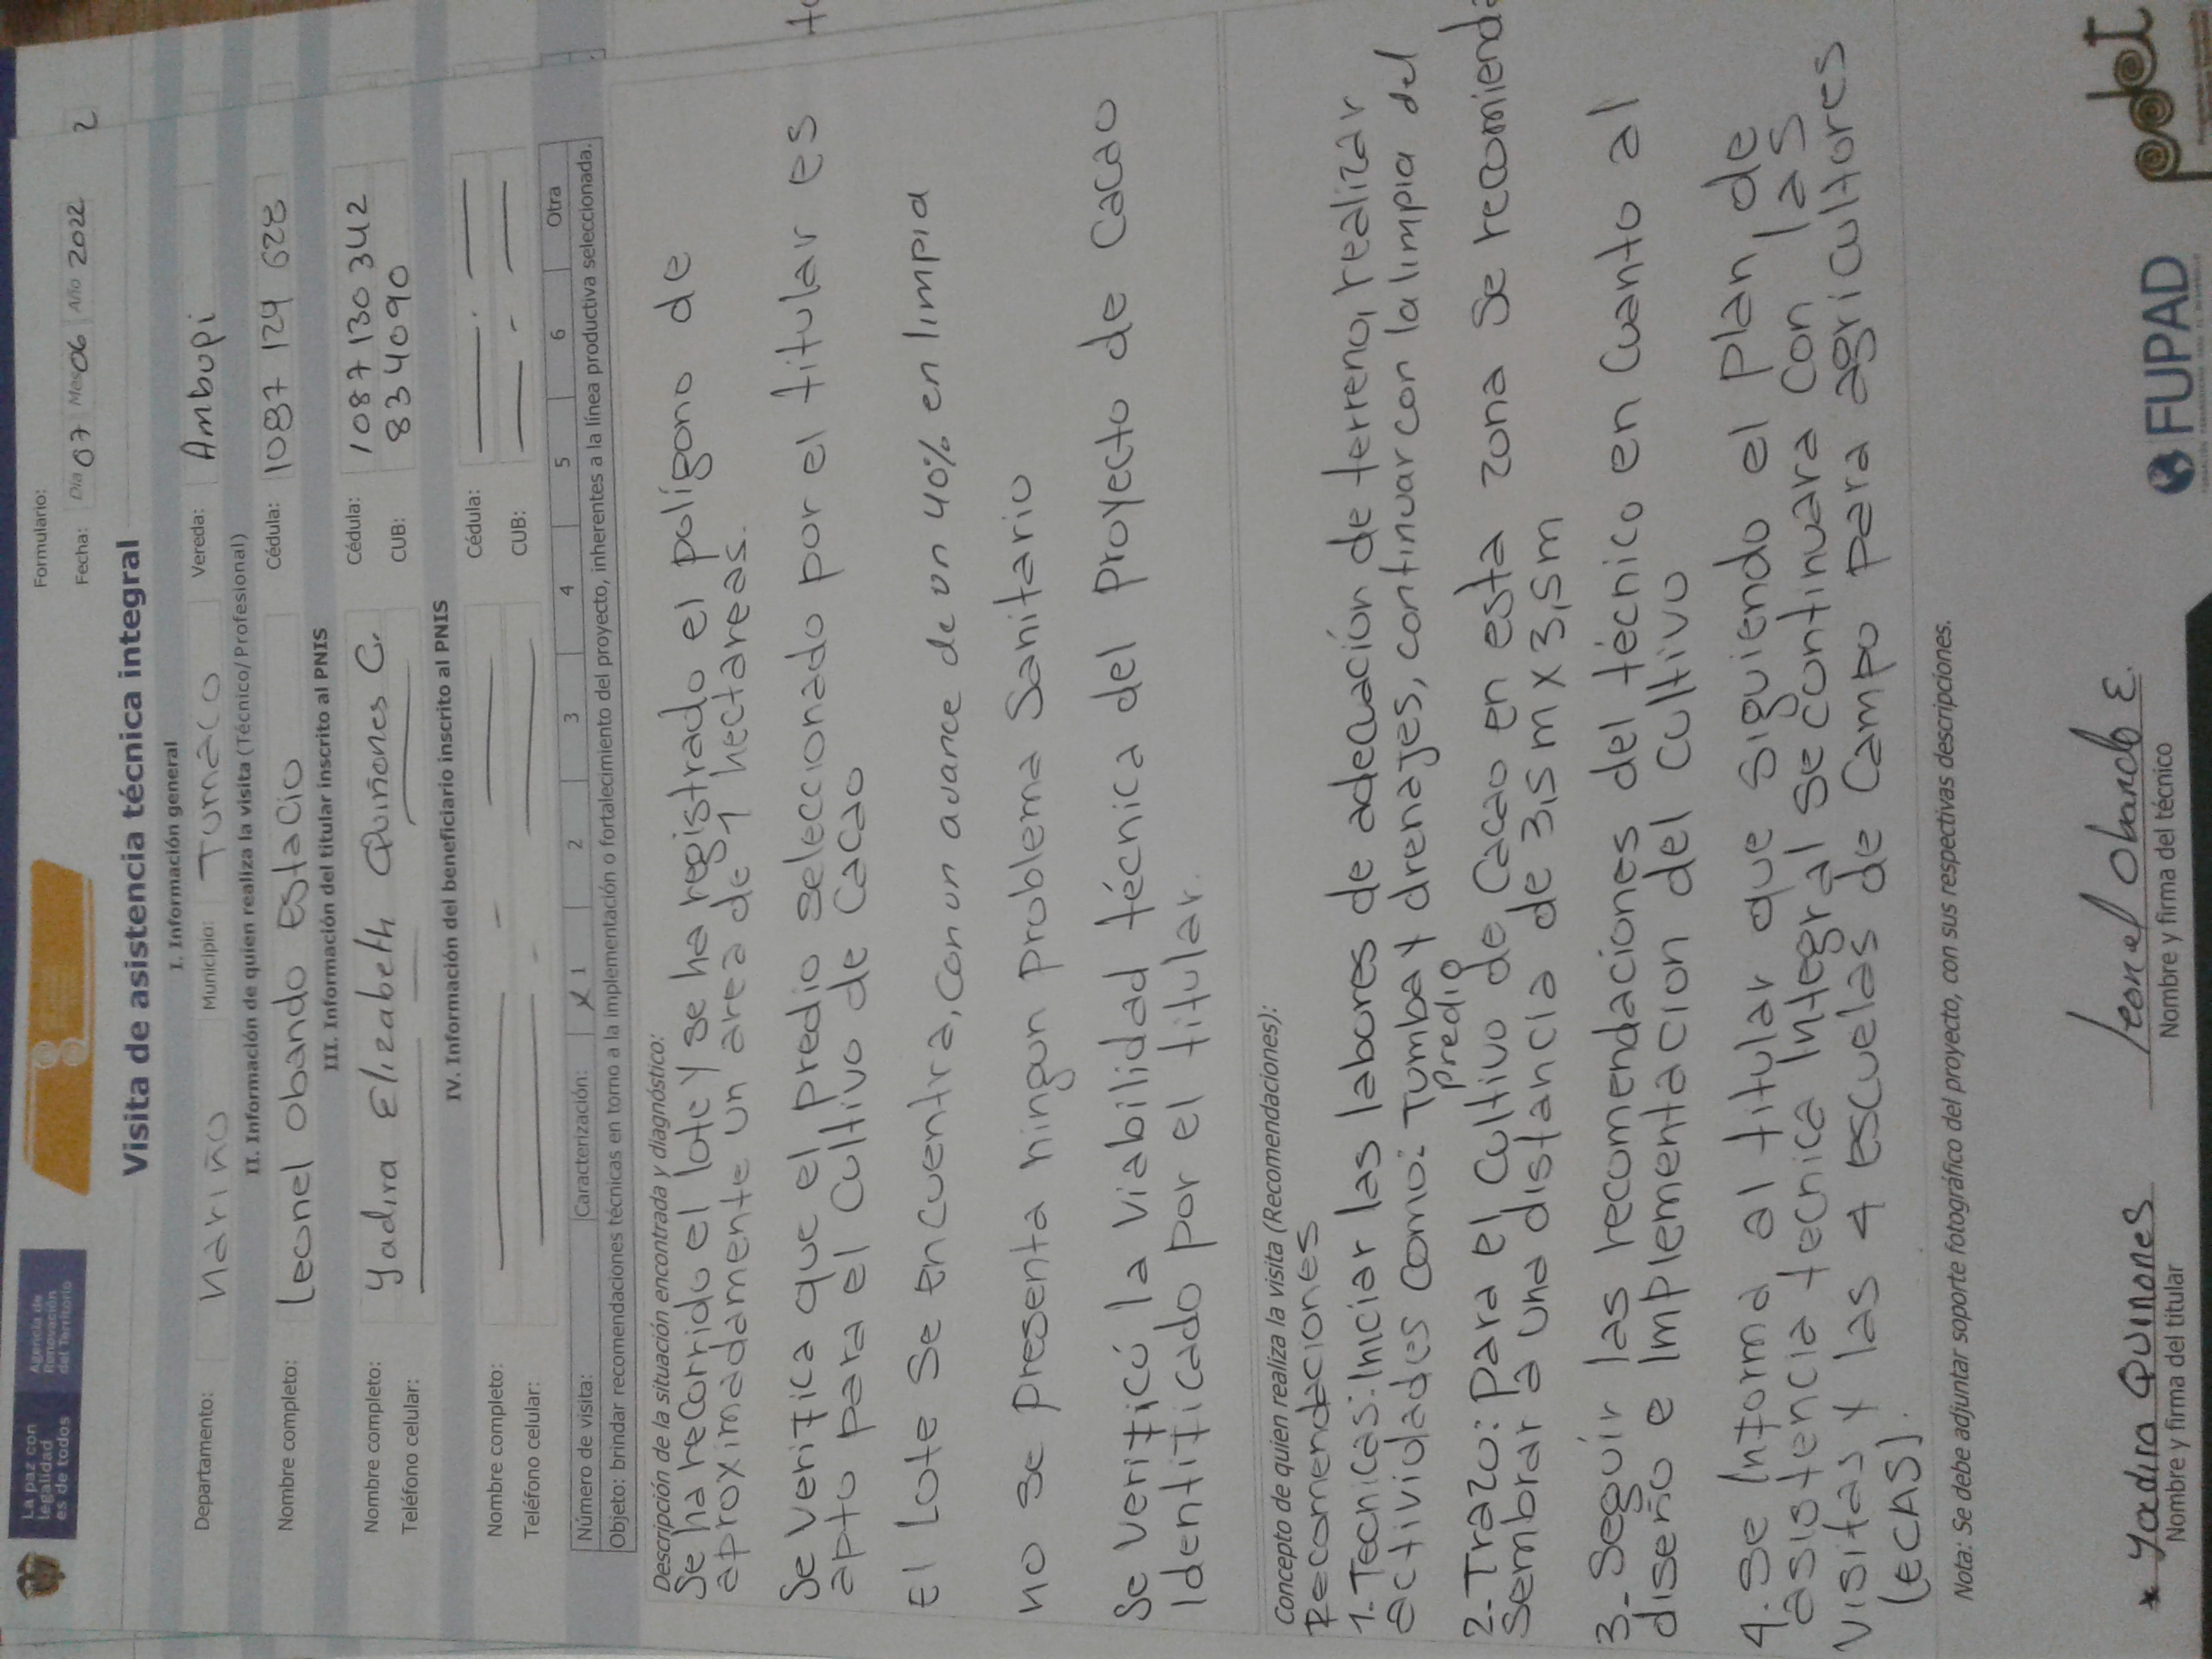 La paz con
legalidad
es de todos
Agencia de
Renovación
del Territorio
Formulario:
Fecha: Día 07 Mes 06 Año 2022
2
Visita de asistencia técnica integral
I. Información general
Departamento: Nariño Municipio: Tumaco Vereda: Ambupi
II. Información de quien realiza la visita (Técnico/Profesional)
Nombre completo: Leonel Obando Estacio Cédula: 1087 124 628
III. Información del titular inscrito al PNIS
Nombre completo: Yadira Elizabeth Quiñones C. Cédula: 1087 130 342
Teléfono celular: CUB: 8334090
IV. Información del beneficiario inscrito al PNIS
Nombre completo: Cédula:
Teléfono celular: CUB:
Número de visita: Caracterización: X 1 2 3 4 5 6 Otra
Objeto: brindar recomendaciones técnicas en torno a la implementación o fortalecimiento del proyecto, inherentes a la línea productiva seleccionada.
Descripción de la situación encontrada y diagnóstico:
Se ha recorrido el lote y se ha registrado el polígono de
aproximadamente un area de 1 hectareas.
Se verifica que el predio seleccionado por el titular es
apto para el cultivo de cacao
El Lote se encuentra, con un avance de un 40% en limpia
no se presenta ningun problema Sanitario
Se verificó la viabilidad técnica del proyecto de cacao
Identificado por el titular.
Concepto de quien realiza la visita (Recomendaciones):
Recomendaciones
1- Tecnicas: Iniciar las labores de adecuación de terreno, realizar
actividades como: Tumba y drenajes, continuar con la limpia del
predio
2- Trazo: Para el cultivo de Cacao en esta zona se recomienda
sembrar a una distancia de 3,5 m x 3,5 m
3- Seguir las recomendaciones del técnico en cuanto al
diseño e Implementacion del cultivo
4. Se Informa al titular que siguiendo el plan de
asistencia tecnica Integral se continuara con las
visitas y las 4 escuelas de campo para agricultores
(ECAS).
Nota: Se debe adjuntar soporte fotográfico del proyecto, con sus respectivas descripciones.
* Yadira Quiñones Leonel Obando E.
Nombre y firma del titular Nombre y firma del técnico
FUPAD
pdet